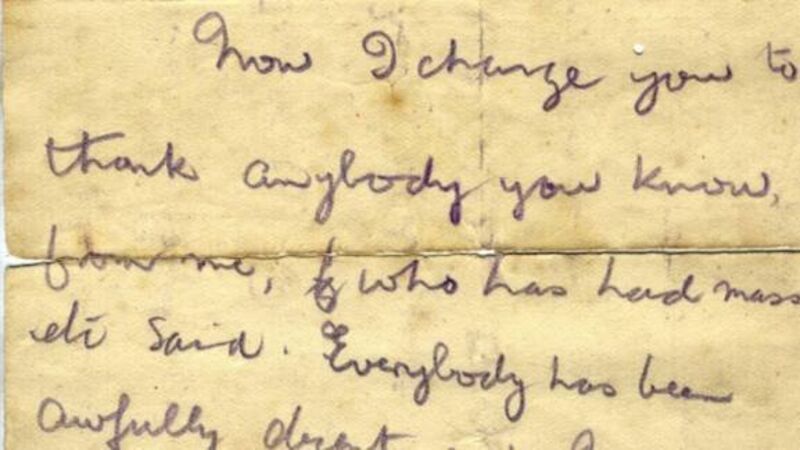 Now I charge you to
thank anybody you know,
from me, who has had mass
etc said. Everybody has been
awfully decent